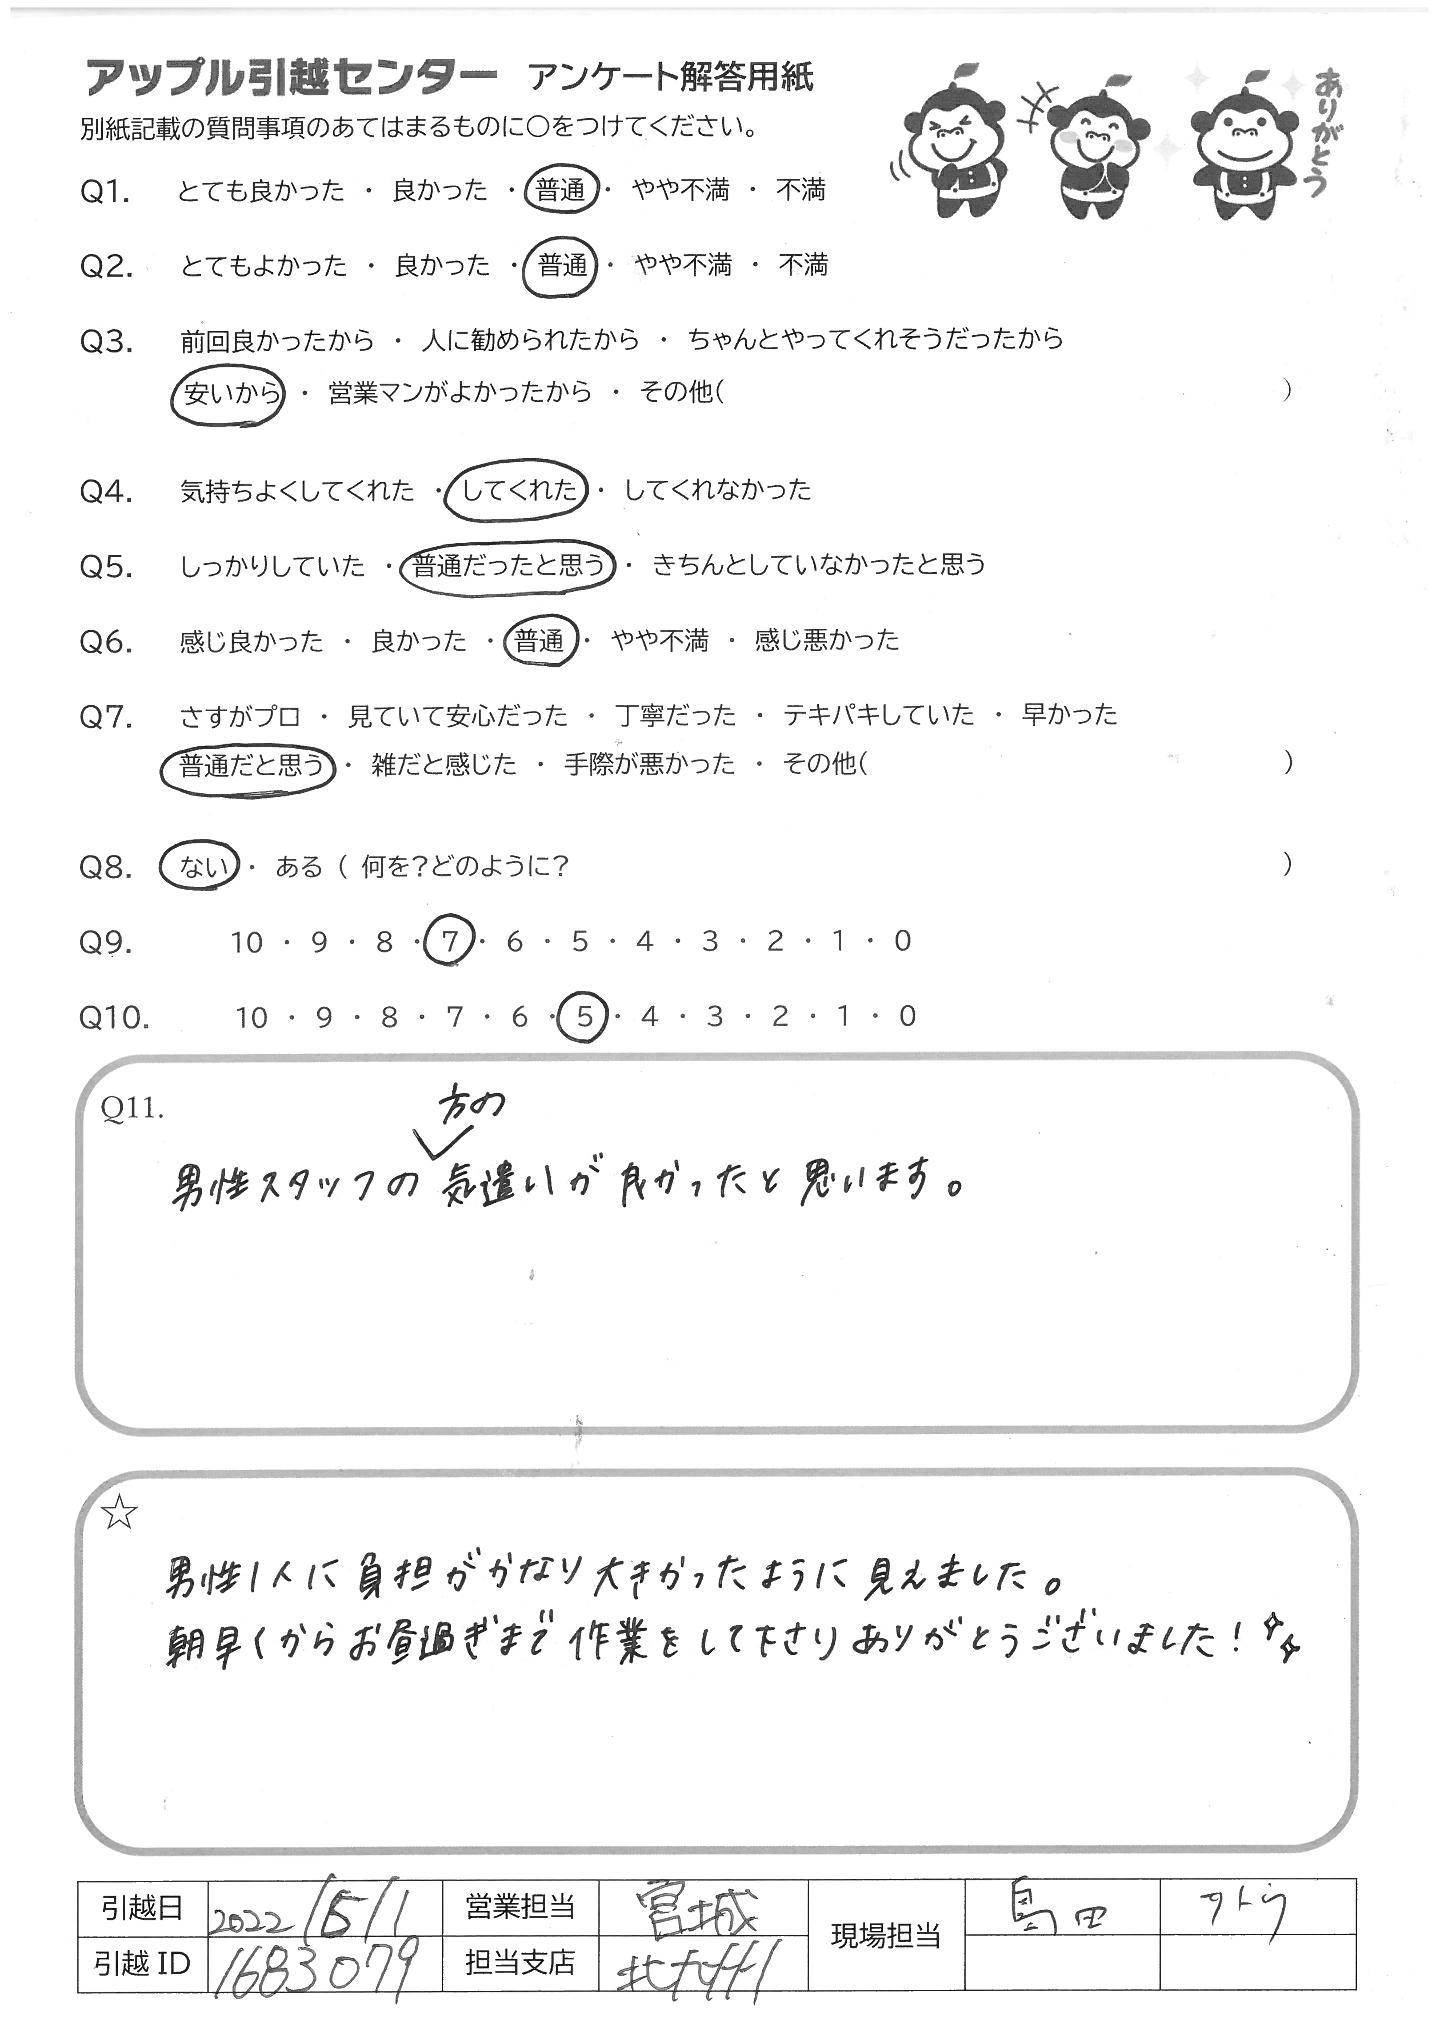 アップル引越センター アンケート解答用紙
ありがとう
別紙記載の質問事項のあてはまるものに○をつけてください。
Q1. とても良かった ・ 良かった ・ 普通 ・ やや不満 ・ 不満
Q2. とてもよかった ・ 良かった ・ 普通 ・ やや不満 ・ 不満
Q3. 前回良かったから ・ 人に勧められたから ・ ちゃんとやってくれそうだったから
安いから ・ 営業マンがよかったから ・ その他( )
Q4. 気持ちよくしてくれた ・ してくれた ・ してくれなかった
Q5. しっかりしていた ・ 普通だったと思う ・ きちんとしていなかったと思う
Q6. 感じ良かった ・ 良かった ・ 普通 ・ やや不満 ・ 感じ悪かった
Q7. さすがプロ ・ 見ていて安心だった ・ 丁寧だった ・ テキパキしていた ・ 早かった
普通だと思う ・ 雑だと感じた ・ 手際が悪かった ・ その他( )
Q8. ない ・ ある ( 何を?どのように? )
Q9. 10 ・ 9 ・ 8 ・ 7 ・ 6 ・ 5 ・ 4 ・ 3 ・ 2 ・ 1 ・ 0
Q10. 10 ・ 9 ・ 8 ・ 7 ・ 6 ・ 5 ・ 4 ・ 3 ・ 2 ・ 1 ・ 0
Q11.
方の
男性スタッフの気遣いが良かったと思います。
☆
男性1人に負担がかなり大きかったように見えました。
朝早くからお昼過ぎまで作業をして下さりありがとうございました!
引越日 2022/5/1 営業担当 宮城 現場担当 島田
引越ID 1683079 担当支店 北九州